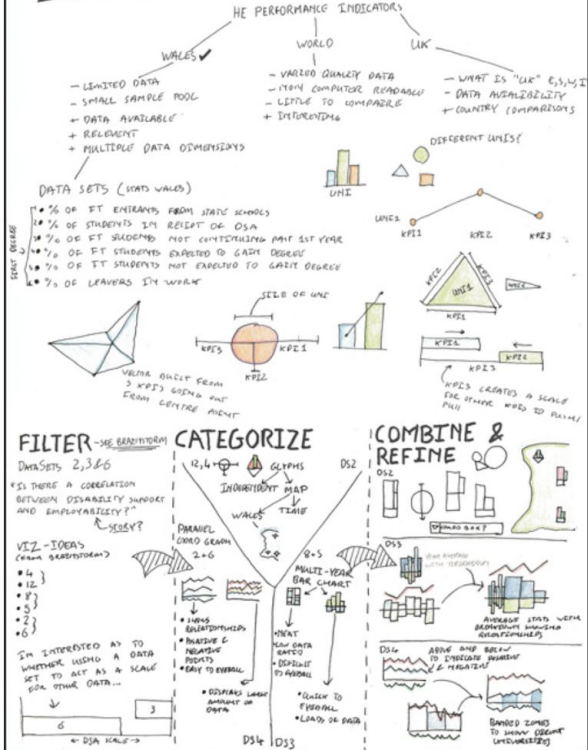 HE PERFORMANCE INDICATORS
WALES ✔
- LIMITED DATA
- SMALL SAMPLE POOL
+ DATA AVAILABLE
+ RELEVENT
+ MULTIPLE DATA DIMENSIONS
WORLD
- VARIED QUALITY DATA
- NON COMPUTER READABLE
- LITTLE TO COMPAIRE
+ INTERESTING
UK
- WHAT IS "UK" E,S,W,I
- DATA AVIALIBILITY
+ COUNTRY COMPARISONS
DIFFERENT UNIS?
UNI
UNI1
KPI1
KPI2
KPI3
DATA SETS (STATS WALES)
FIRST DEGREE
1 • % OF FT ENTRANTS FROM STATE SCHOOLS
2 • % OF STUDENTS IN RECIPT OF DSA
3 • % OF FT STUDENTS NOT CONTINUING PAST 1ST YEAR
• % OF FT STUDENTS EXPECTED TO GAIN DEGREE
• % OF FT STUDENTS NOT EXPECTED TO GAIN DEGREE
• % OF LEAVERS IN WORK
VECTOR BUILT FROM
3 KPIS GOING OUT
FROM CENTRE POINT
SIZE OF UNI
KPI3
KPI1
KPI2
KPI2
KPI3
UNI1
KPI1
KPI1
KPI2
KPI3
KPI3 CREATES A SCALE
FOR OTHER KPIS TO PUSH/
PULL
FILTER - SEE BRAINSTORM
DATASETS 2,3&6
"IS THERE A CORRELATION
BETWEEN DISABILITY SUPPORT
AND EMPLOYABILITY?"
STORY?
VIZ-IDEAS
(FROM BRAINSTORM)
• 4
• 12
• 8
• 5
• 2
• 6
I'M INTERESTED AS TO
WHETHER USING A DATA
SET TO ACT AS A SCALE
FOR OTHER DATA...
3
6
DSA SCALE
CATEGORIZE
12,4
GLYPHS
DS2
INDEPENDENT MAP
WALES
TIME
PARALLEL
CORD GRAPH
2+6
8+5
MULTI-YEAR
BAR CHART
• SHOWS
RELATIONSHIPS
• POSITIVE &
NEGATIVE
POINTS
• EASY TO EYEBALL
• DISPLAYS LARGE
AMOUNT OF
DATA
• NEAT
• LOW DATA
RATIO
• DIFFICULT
TO EYEBALL
• QUICK TO
EYEBALL
• LOADS OF DATA
DS4
DS3
COMBINE &
REFINE
DS2
DS3
YEAR AVERAGE
WITH BREAKDOWN
AVERAGE STATS WITH
BREAKDOWN SHOWING
RELATIONSHIPS
DS4
ABOVE AND BELOW
TO INDICATE POSITIVE
& NEGATIVE
BANDED ZONES
TO SHOW DIFFERENT
UNIVERSITIES